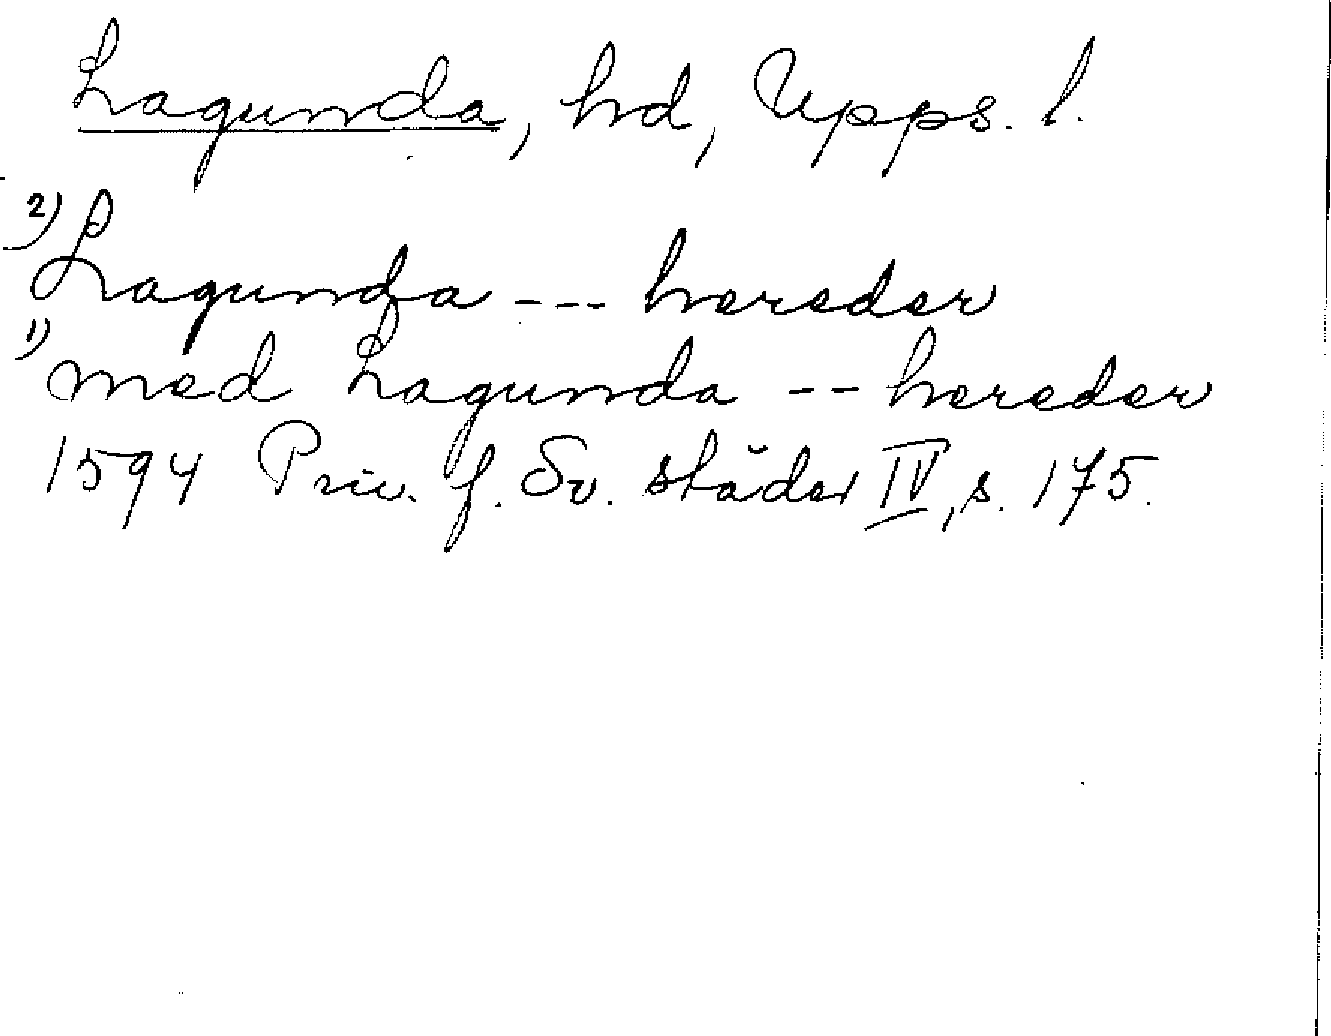 Lagunda, hd, Upps. l.
2) Lagunda --- hereder
1) med Lagunda -- hereder
1594 Priv. f. Sv. städer IV, s. 175.